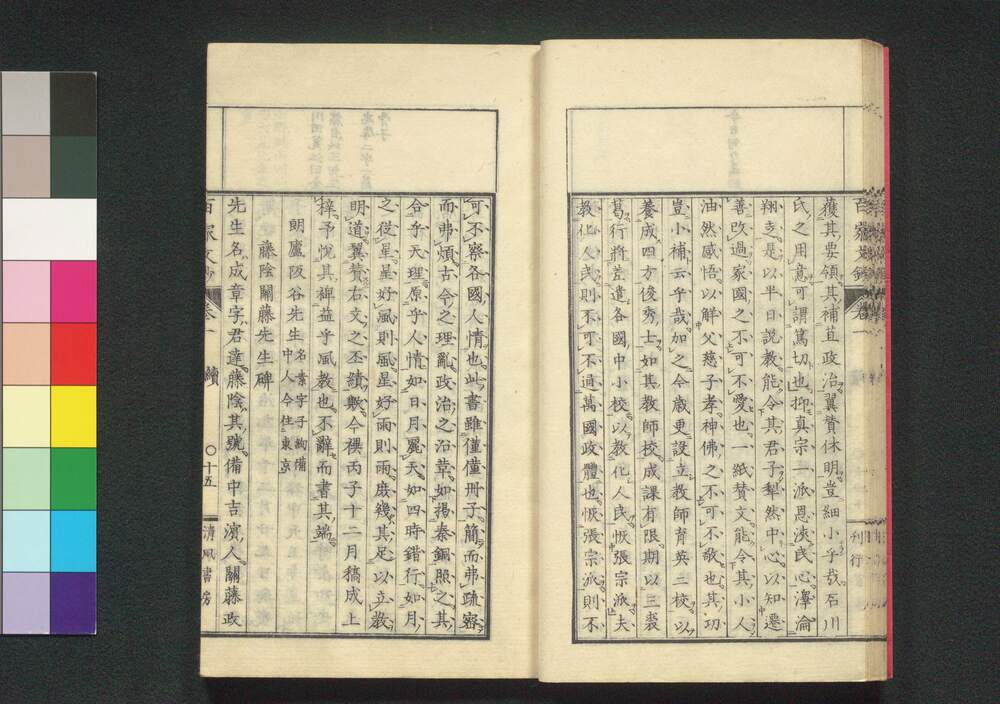 獲其要領其補苴政治翼賛休明豈細小乎哉石川
氏之用意可謂篤切也抑真宗一派恩淡民心澤淪
翔支是以半日説教能令其君子犁然中心以知遷
善改過家國之不可不愛也一紙賛文能令其小人
油然感悟以解父慈子孝神佛之不可不敬也其功
豈小補云乎哉加之今歳更設立教師育英三校以
養成四方俊秀士如其教師校成課有限期以三裘
葛行將差遣各國中小校以教化人民恢張宗派夫
教化人民則不可不通萬國政體也恢張宗派則不
刊行
可不察各國人情也此書雖僅僅冊子簡而弗疏密
而弗煩古今之理亂政治之沿革如揚秦銅照之其
合乎天理原乎人情如日月麗天如四時錯行如月
之從星星好風則風星好雨則雨庶幾其足以立教
明道翼賛右文之丕績歟今禩丙子十二月稿成上
梓予悅其裨益乎風教也不辭而書其端
朗廬阪谷先生 名素字子絢備
中人今住東京
藤陰關藤先生碑
先生名成章字君達藤陰其號備中吉濱人關藤政
卷一
續
〇十五
清風書房